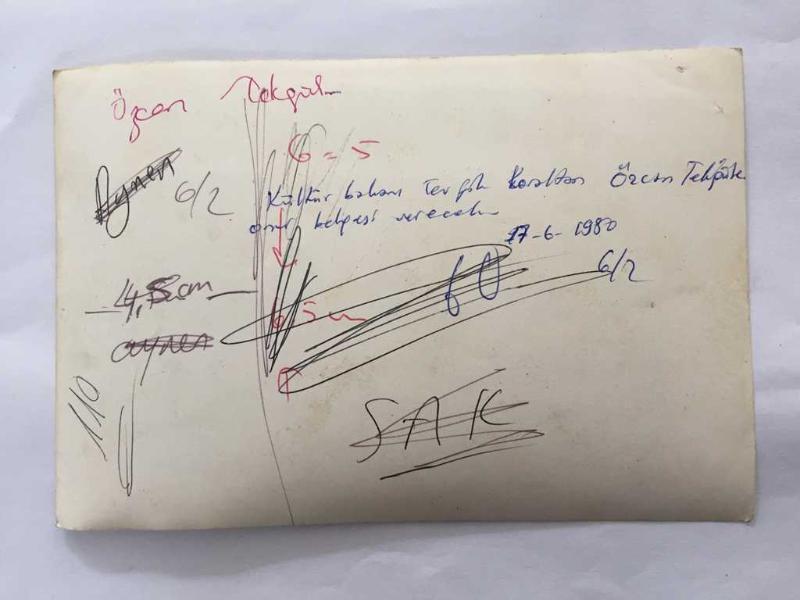 Özcan Tekgül
6 = 5
Aynen 6/2
Kültür bakanı Tevfik Koraltan Özcan Tekgüle
onur belgesi verecek
17-6-1980
6/2
4,5 cm
6,5 cm
60
aynen
110
ŞAK